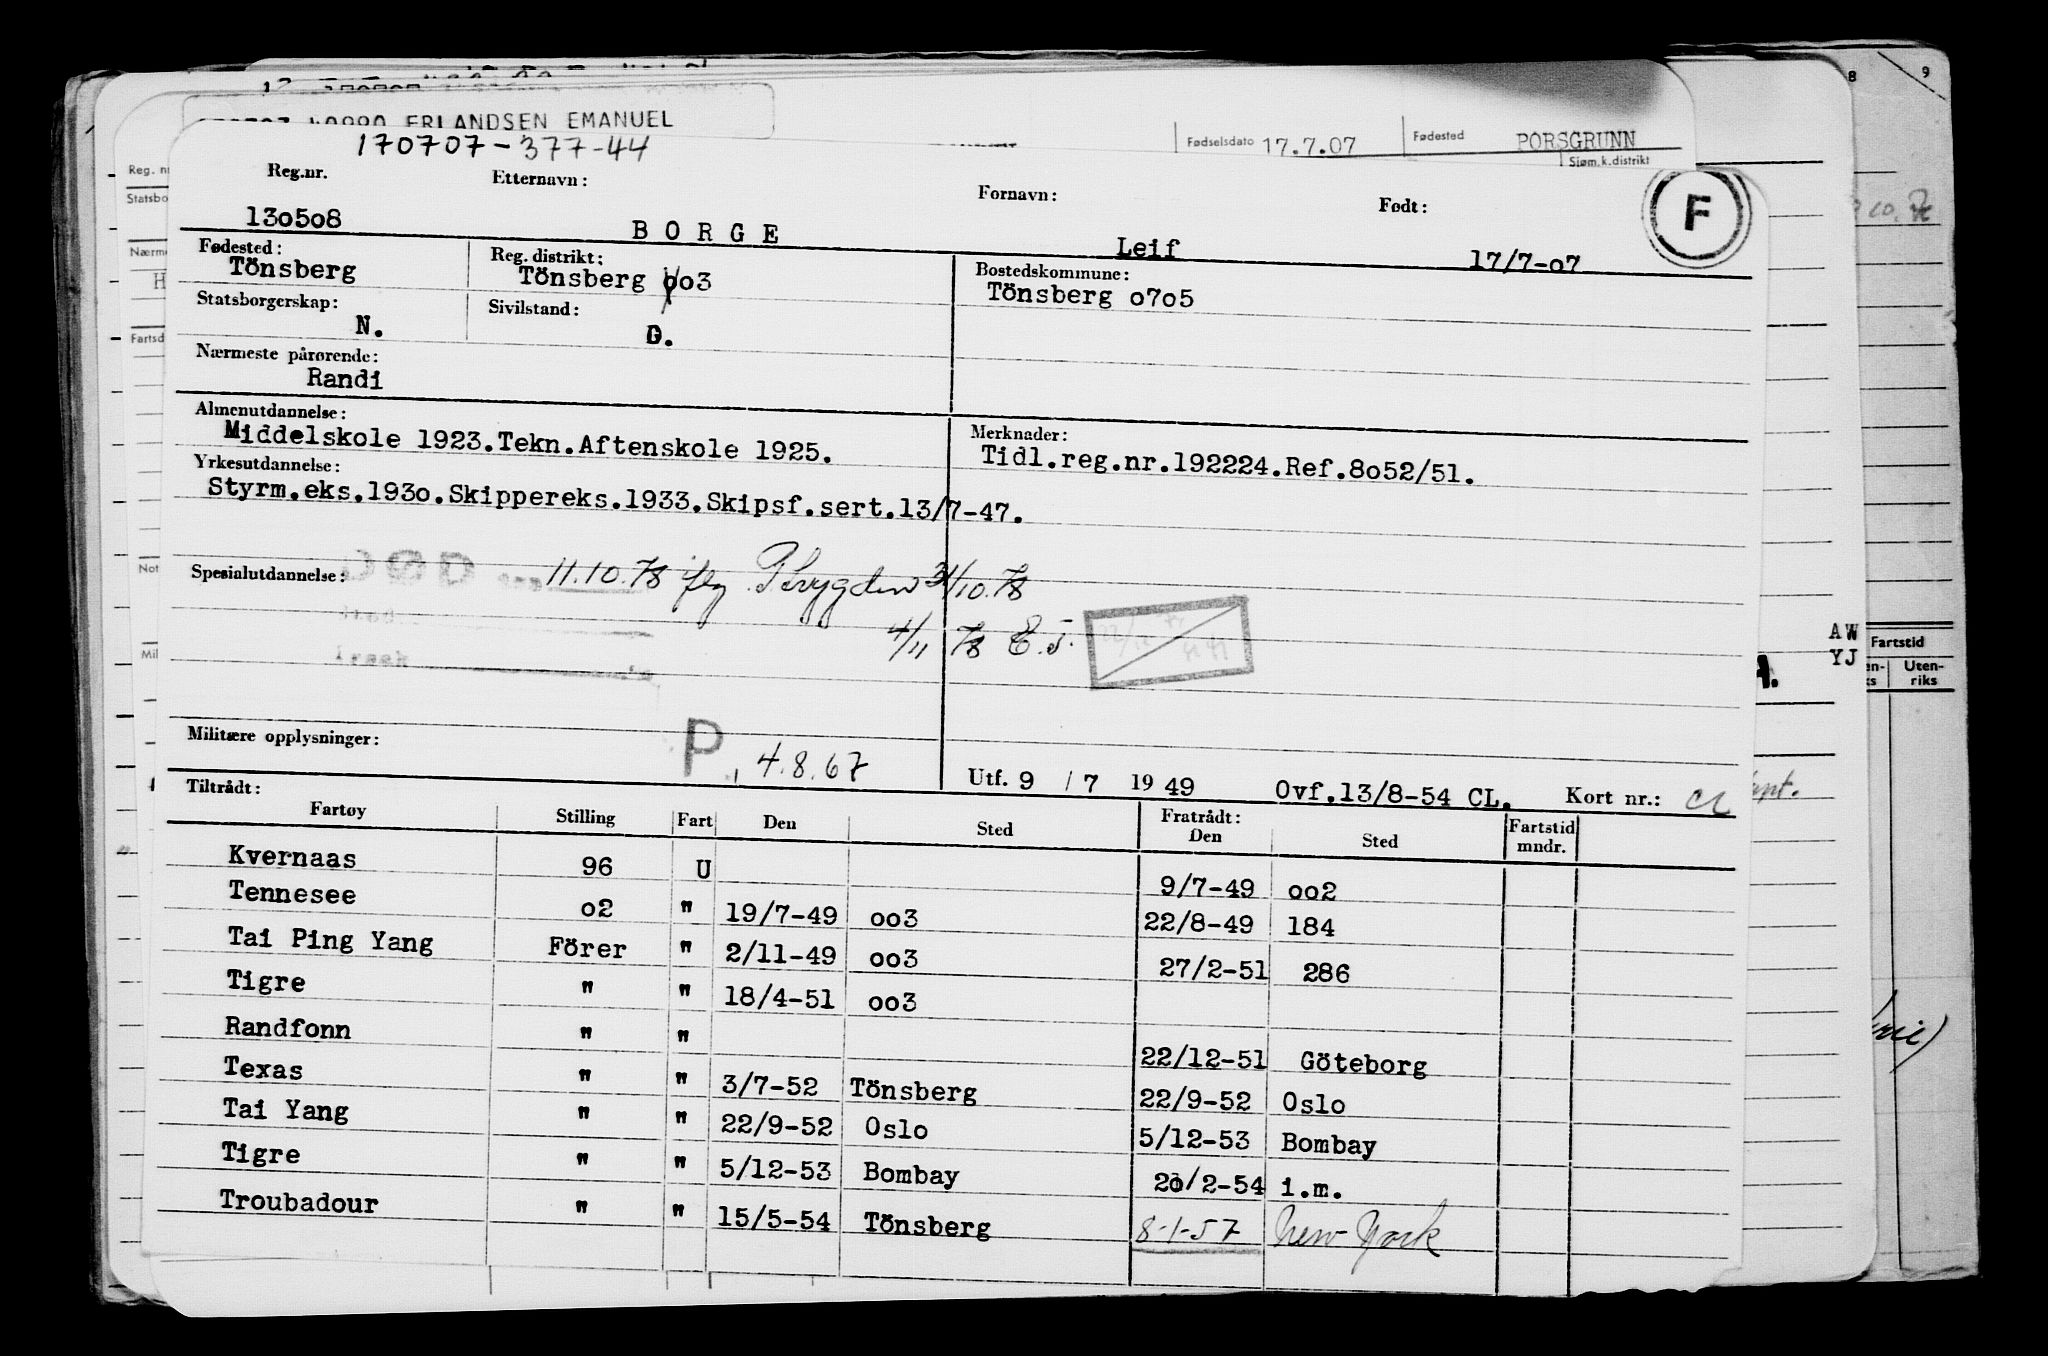 ERLANDSEN EMANUEL
Fødselsdato 17.7.07 Fødested PORSGRUNN
Sjøm.k.distrikt
170707-377-44
Reg.nr. Etternavn: Fornavn: Født: F
130508 BORGE Leif 17/7-07
Fødested: Reg. distrikt: Bostedskommune:
Tönsberg Tönsberg 003 Tönsberg 0705
Statsborgerskap: Sivilstand:
N. G.
Nærmeste pårørende:
Randi
Almenutdannelse: Merknader:
Middelskole 1923.Tekn.Aftenskole 1925. Tidl.reg.nr.192224.Ref.8052/51.
Yrkesutdannelse:
Styrm.eks.1930.Skippereks.1933.Skipsf.sert.13/7-47.
Spesialutdannelse: 11.10.78 iflg P.trygden 31/10.78
4/11 78 E.J.
Militære opplysninger: P 4.8.67
Utf. 9 / 7 1949 Ovf.13/8-54 CL. Kort nr.: CL
Tiltrådt: Fratrådt:
Fartøy Stilling Fart Den Sted Den Sted Fartstid mndr.
Kvernaas 96 U 9/7-49 002
Tennesee 02 " 19/7-49 003 22/8-49 184
Tai Ping Yang Förer " 2/11-49 003 27/2-51 286
Tigre " " 18/4-51 003
Randfonn " " 22/12-51 Göteborg
Texas " " 3/7-52 Tönsberg 22/9-52 Oslo
Tai Yang " " 22/9-52 Oslo 5/12-53 Bombay
Tigre " " 5/12-53 Bombay /2-54 i.m.
Troubadour " " 15/5-54 Tönsberg 8-1-57 New York
8 9
AW
YJ
Fartstid
Uten-
riks